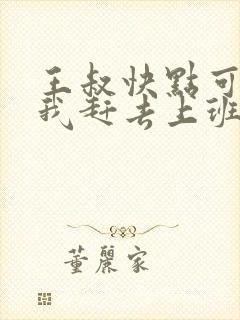 王叔快點可
我赶去上班
董麗家